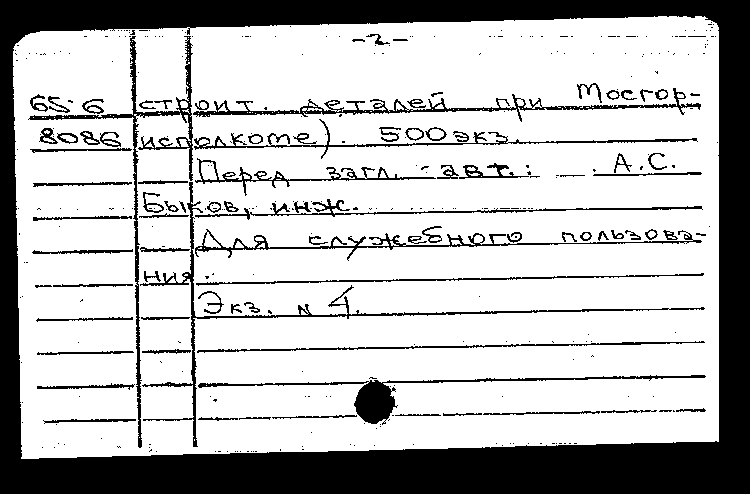 -2-
65-6 строит. деталей при Мосгор-
8086 исполкоме). 500 экз.
Перед загл. авт.: А.С.
Быков, инж.
Для служебного пользова-
ния.
Экз. N 4.